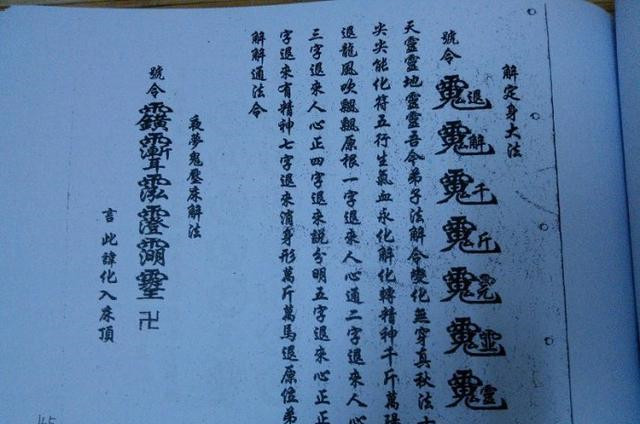 解定身大法
號令 退 解 千 斤
天靈靈地靈靈吾令弟子法解令變化無穿真秋法
尖尖能化符五行生氣血永化解化轉精神千斤萬
退龍風吹飄飄原根一字退來人心通二字退來人心
三字退來人心正四字退來說分明五字退來心正正
字退來有精神七字退來身形萬斤萬馬退原位弟
解解通法令
夜夢鬼壓床解法
號令 卍
言此諱化入床頂